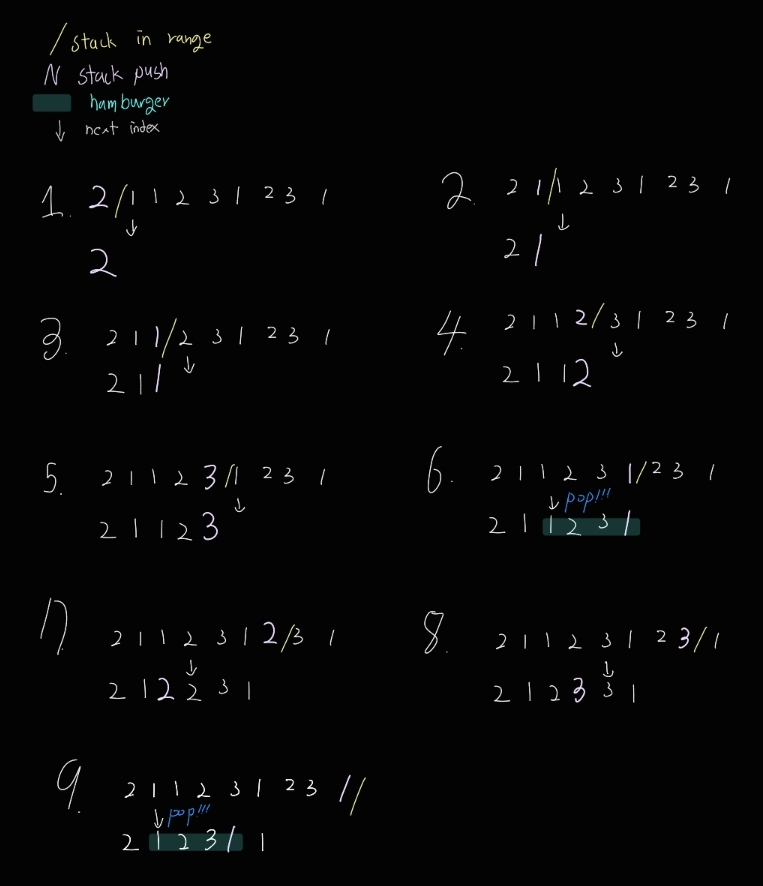 / stack in range
N stack push
hamburger
↓ next index
1. 2/1 1 2 3 1 2 3 1
↓
2
2. 2 1/1 2 3 1 2 3 1
↓
2 1
3. 2 1 1/2 3 1 2 3 1
↓
2 1 1
4. 2 1 1 2/3 1 2 3 1
↓
2 1 1 2
5. 2 1 1 2 3/1 2 3 1
↓
2 1 1 2 3
6. 2 1 1 2 3 1/2 3 1
↓ pop!!!
2 1 1 2 3 1
7. 2 1 1 2 3 1 2/3 1
↓
2 1 2 2 3 1
8. 2 1 1 2 3 1 2 3/1
↓
2 1 2 3 3 1
9. 2 1 1 2 3 1 2 3 1/
↓ pop!!!
2 1 2 3 1 1